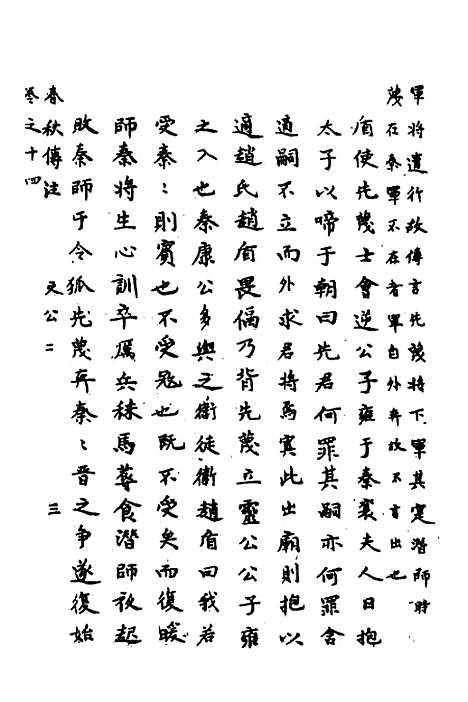 軍將遣行故傳言先蔑將下軍其寔潛師時
蔑在秦軍不在者軍自外奔故不言出也
盾使先蔑士會逆公子雍于秦襄夫人日抱
太子以啼于朝曰先君何罪其嗣亦何罪舍
適嗣不立而外求君將焉寘此出廟則抱以
適趙氏趙盾畏偪乃背先蔑立靈公公子雍
之入也秦康公多與之衛徒衛趙盾曰我若
受秦秦則賓也不受寇也既不受矣而復緩
師秦將生心訓卒厲兵秣馬蓐食潛師夜起
敗秦師于令狐先蔑奔秦秦晉之爭遂復始
春秋傳注 文公二 三
卷之十四